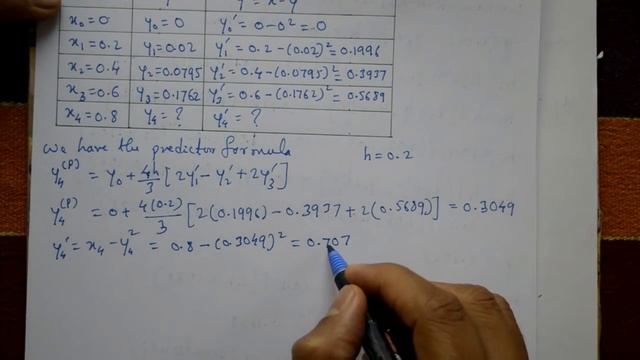 x₀=0 y₀=0 y₀′=0-0²=0
x₁=0.2 y₁=0.02 y₁′=0.2-(0.02)²=0.1996
x₂=0.4 y₂=0.0795 y₂′=0.4-(0.0795)²=0.3937
x₃=0.6 y₃=0.1762 y₃′=0.6-(0.1762)²=0.5689
x₄=0.8 y₄=? y₄′=?
we have the predictor formula h=0.2
y₄⁽ᴾ⁾ = y₀ + 4h/3 [2y₁′ - y₂′ + 2y₃′]
y₄⁽ᴾ⁾ = 0 + 4(0.2)/3 [2(0.1996) - 0.3937 + 2(0.5689)] = 0.3049
y₄′ = x₄ - y₄² = 0.8 - (0.3049)² = 0.707